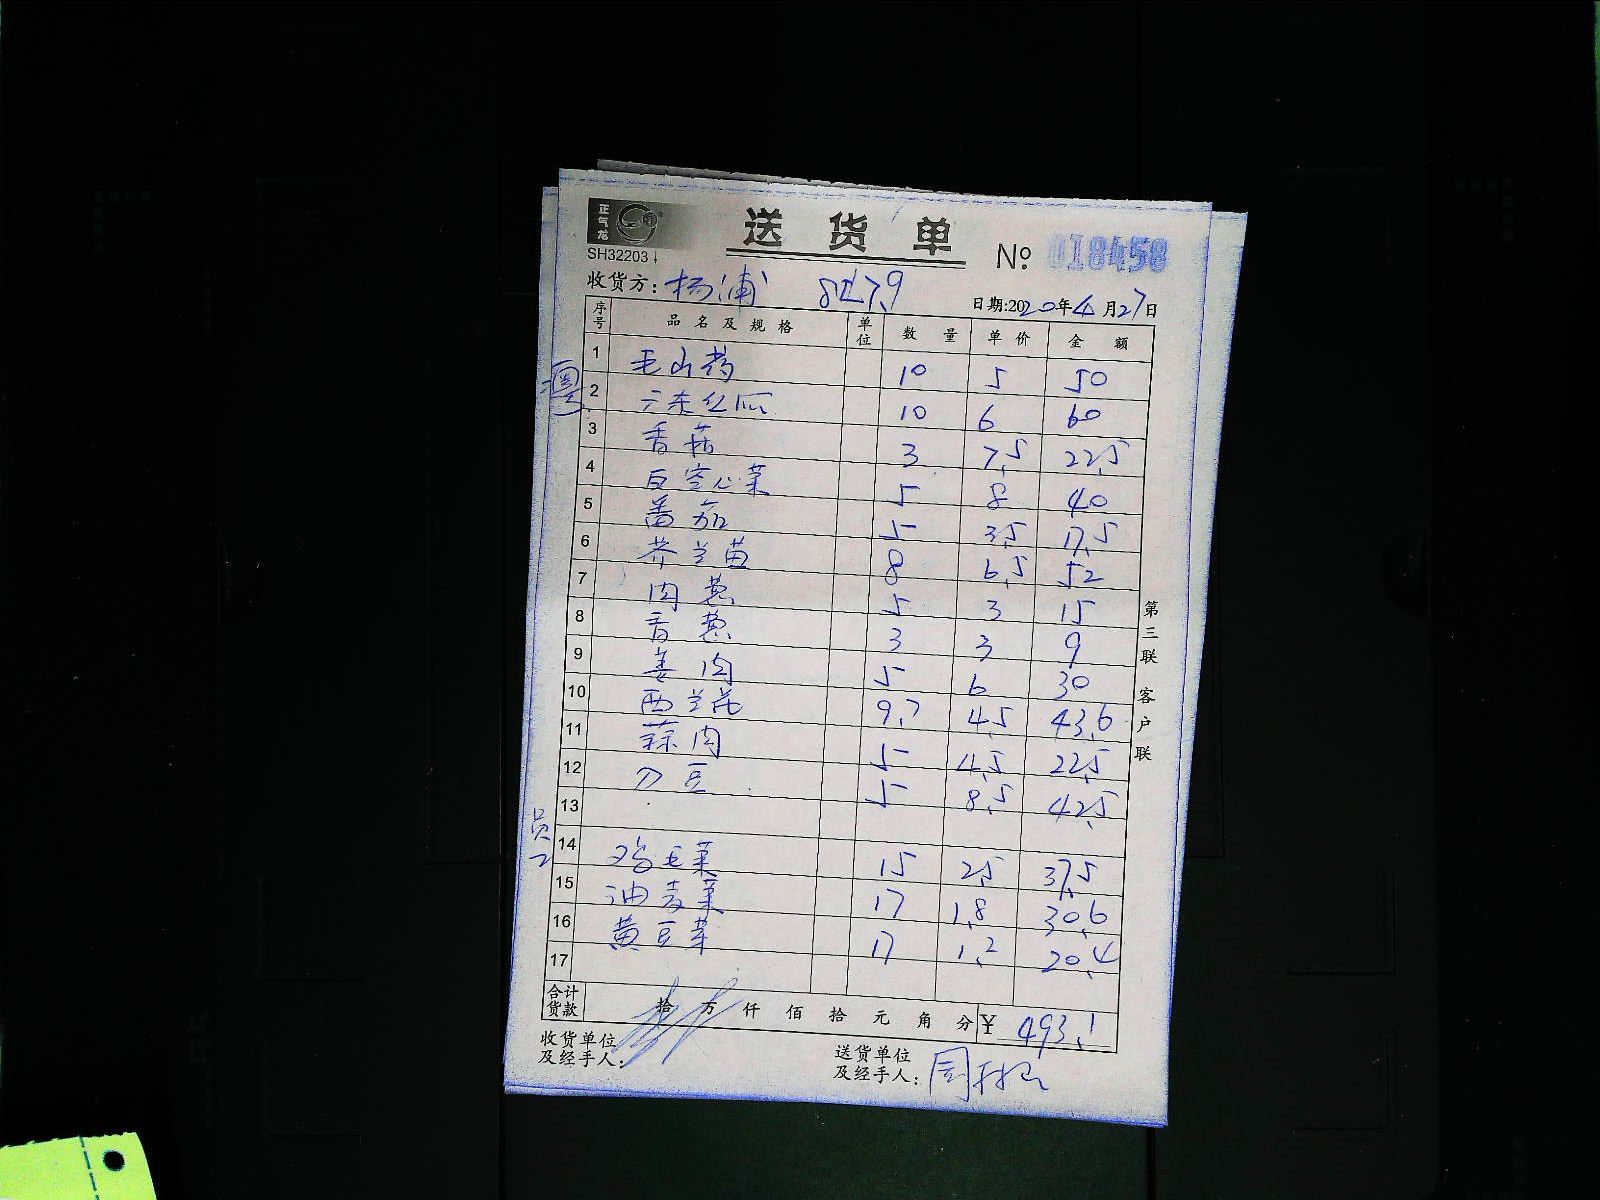 正气龙
送货单 № 018458
SH32203
收货方:杨浦
日期:2020年4月27日
序号 品名及规格 单位 数量 单价 金额
1 毛山药 10 5 50
2 广东丝瓜 10 6 60
3 香菇 3 7.5 22.5
4 白空心菜 5 8 40
5 番茄 5 3.5 17.5
6 芥兰苗 8 6.5 52
7 肉葱 5 3 15
8 香葱 3 3 9
9 姜肉 5 6 30
10 西兰花 9.7 4.5 43.6
11 蒜肉 5 4.5 22.5
12 刀豆 5 8.5 42.5
13
14 鸡毛菜 15 2.5 37.5
15 油麦菜 17 1.8 30.6
16 黄豆芽 17 1.2 20.4
17
合计货款 拾 万 仟 佰 拾 元 角 分 ¥ 493.1
收货单位及经手人:
送货单位及经手人:
第三联 客户联
员工